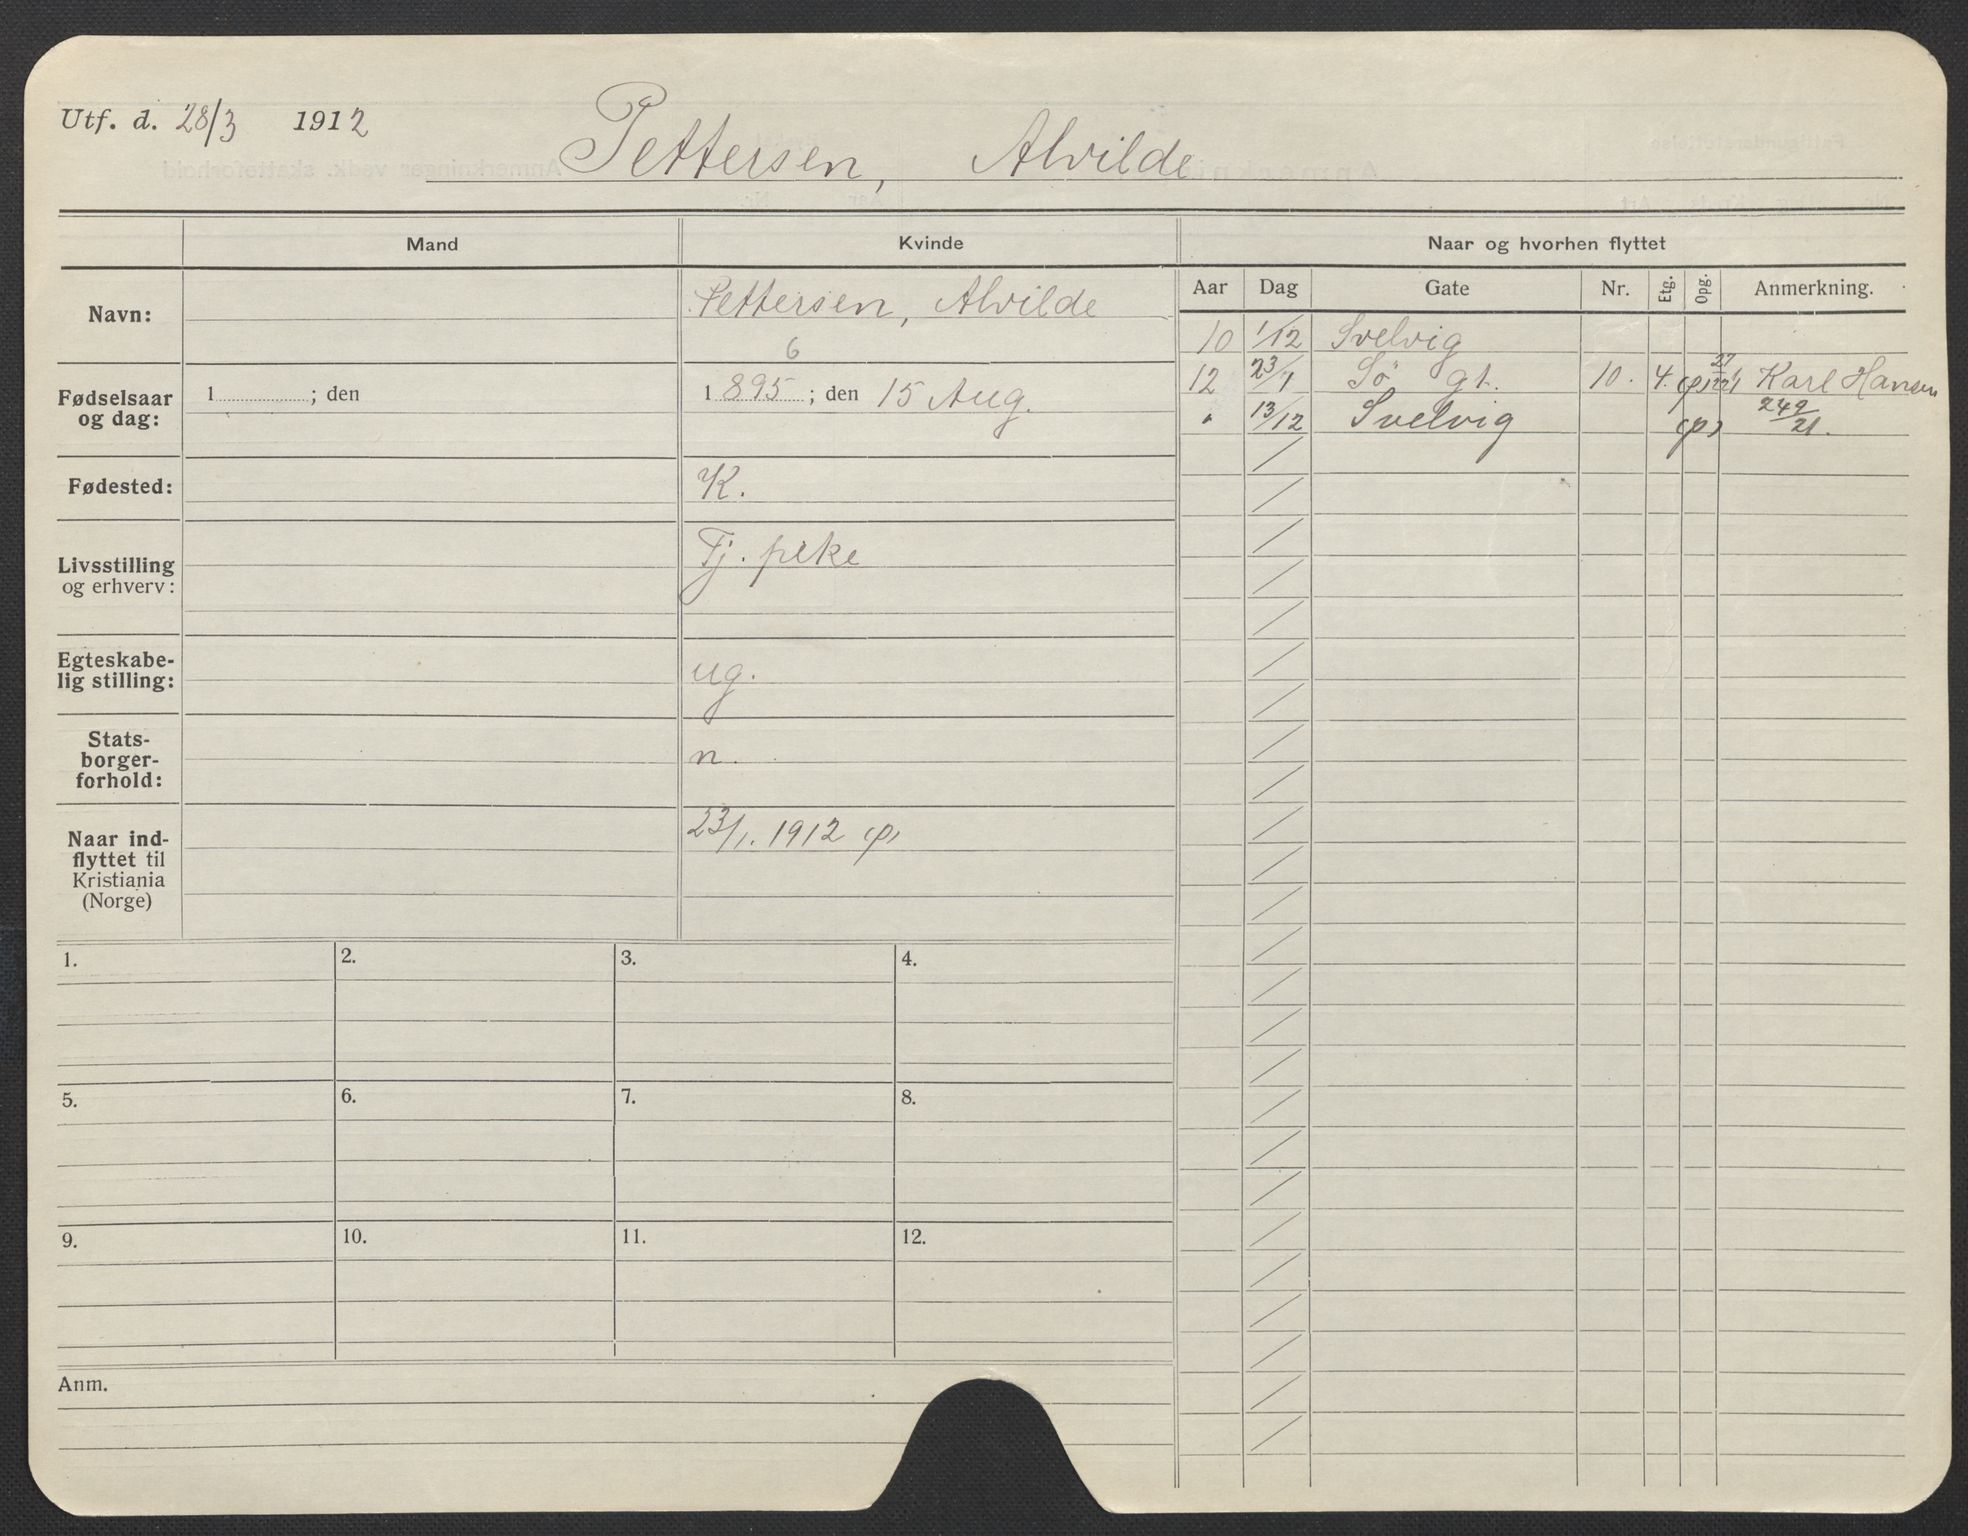 Utf. d. 28/3 1912
Pettersen, Alvilde
Mand
Kvinde
Naar og hvorhen flyttet
Aar Dag Gate Nr. Etg. Opg. Anmerkning.
Navn: Pettersen, Alvilde
10 1/12 Svelvig
6
Fødselsaar og dag: 1 ; den 1 895 ; den 15 Aug.
12 23/1 Sö gt. 10. 4. (p) Karl Hansen
" 13/12 Svelvig (p) 249/21.
Fødested: K.
Livsstilling og erhverv: Tj. pike
Egteskabe-
lig stilling: ug.
Stats-
borger-
forhold: n.
Naar ind-
flyttet til
Kristiania
(Norge)
23/1. 1912 (p)
1. 2. 3. 4.
5. 6. 7. 8.
9. 10. 11. 12.
Anm.